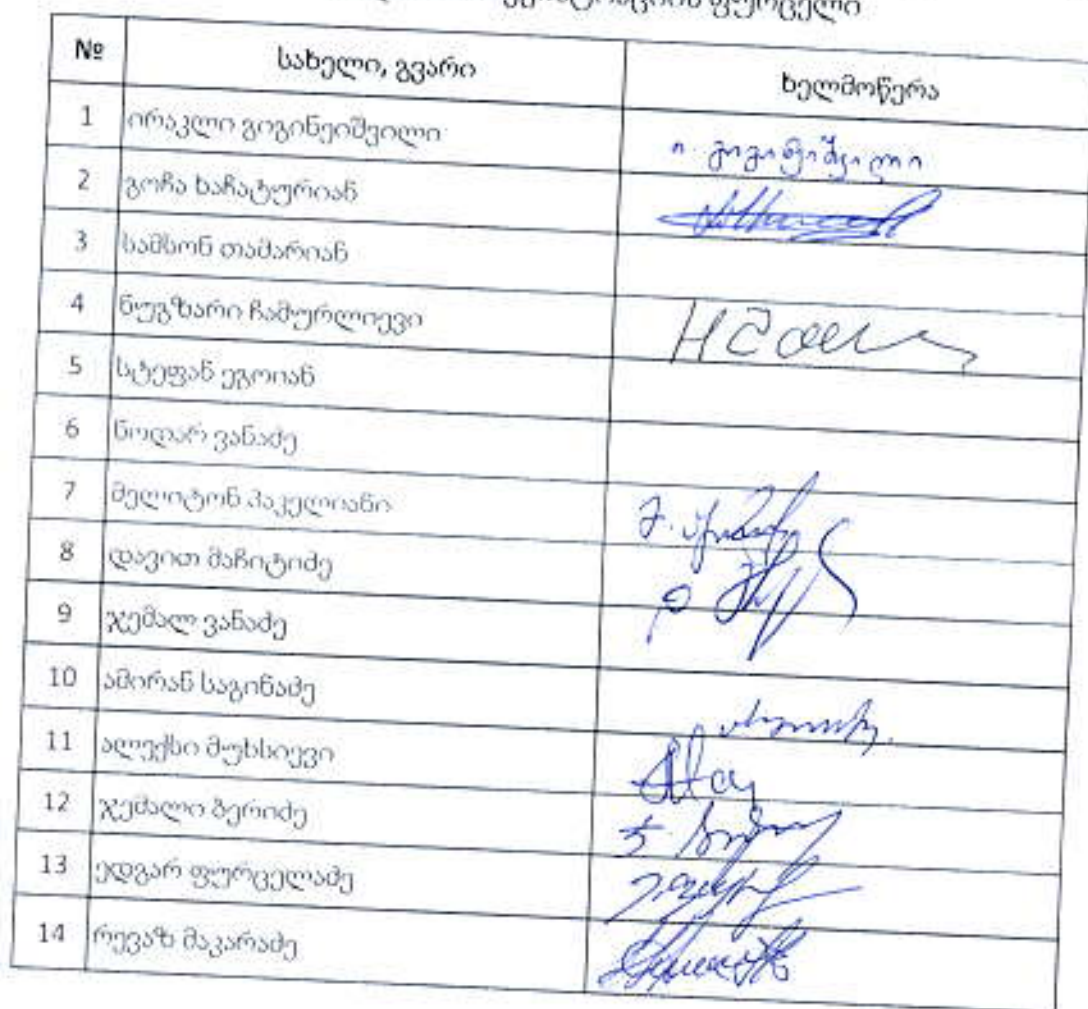 ფურცელი
№ სახელი, გვარი ხელმოწერა
1 ირაკლი გიგინეიშვილი ი. გიგინეიშვილი
2 გოჩა ხაჩატურიან
3 სამსონ თამარიან
4 ნუგზარი ჩამურლიევი
5 სტეფან ეგოიან
6 ნოდარ ვანაძე
7 მელიტონ პაკელიანი
8 დავით მაჩიტიძე
9 ჯემალ ვანაძე
10 ამირან საგინაძე
11 ალექსი მუხსიევი
12 ჯემალი ბერიძე
13 ედგარ ფურცელაძე
14 რევაზ მაკარაძე